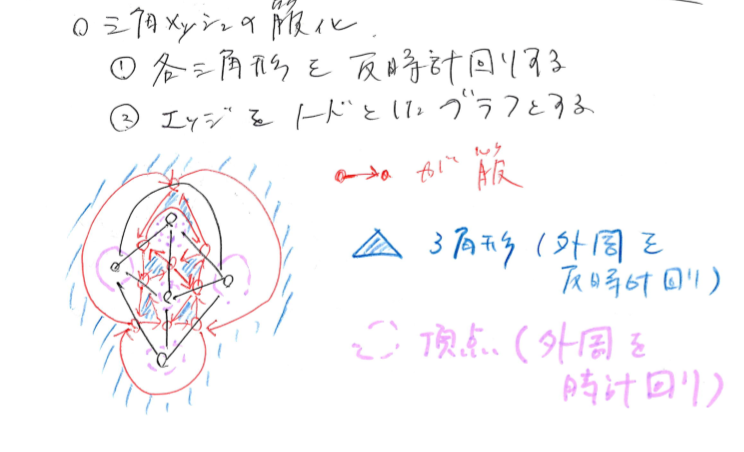 ○ 三角メッシュの箙化
① 各三角形を反時計回りする
② エッジをノードとしたグラフとする
が箙
3角形(外周を
反時計回り)
頂点(外周を
時計回り)